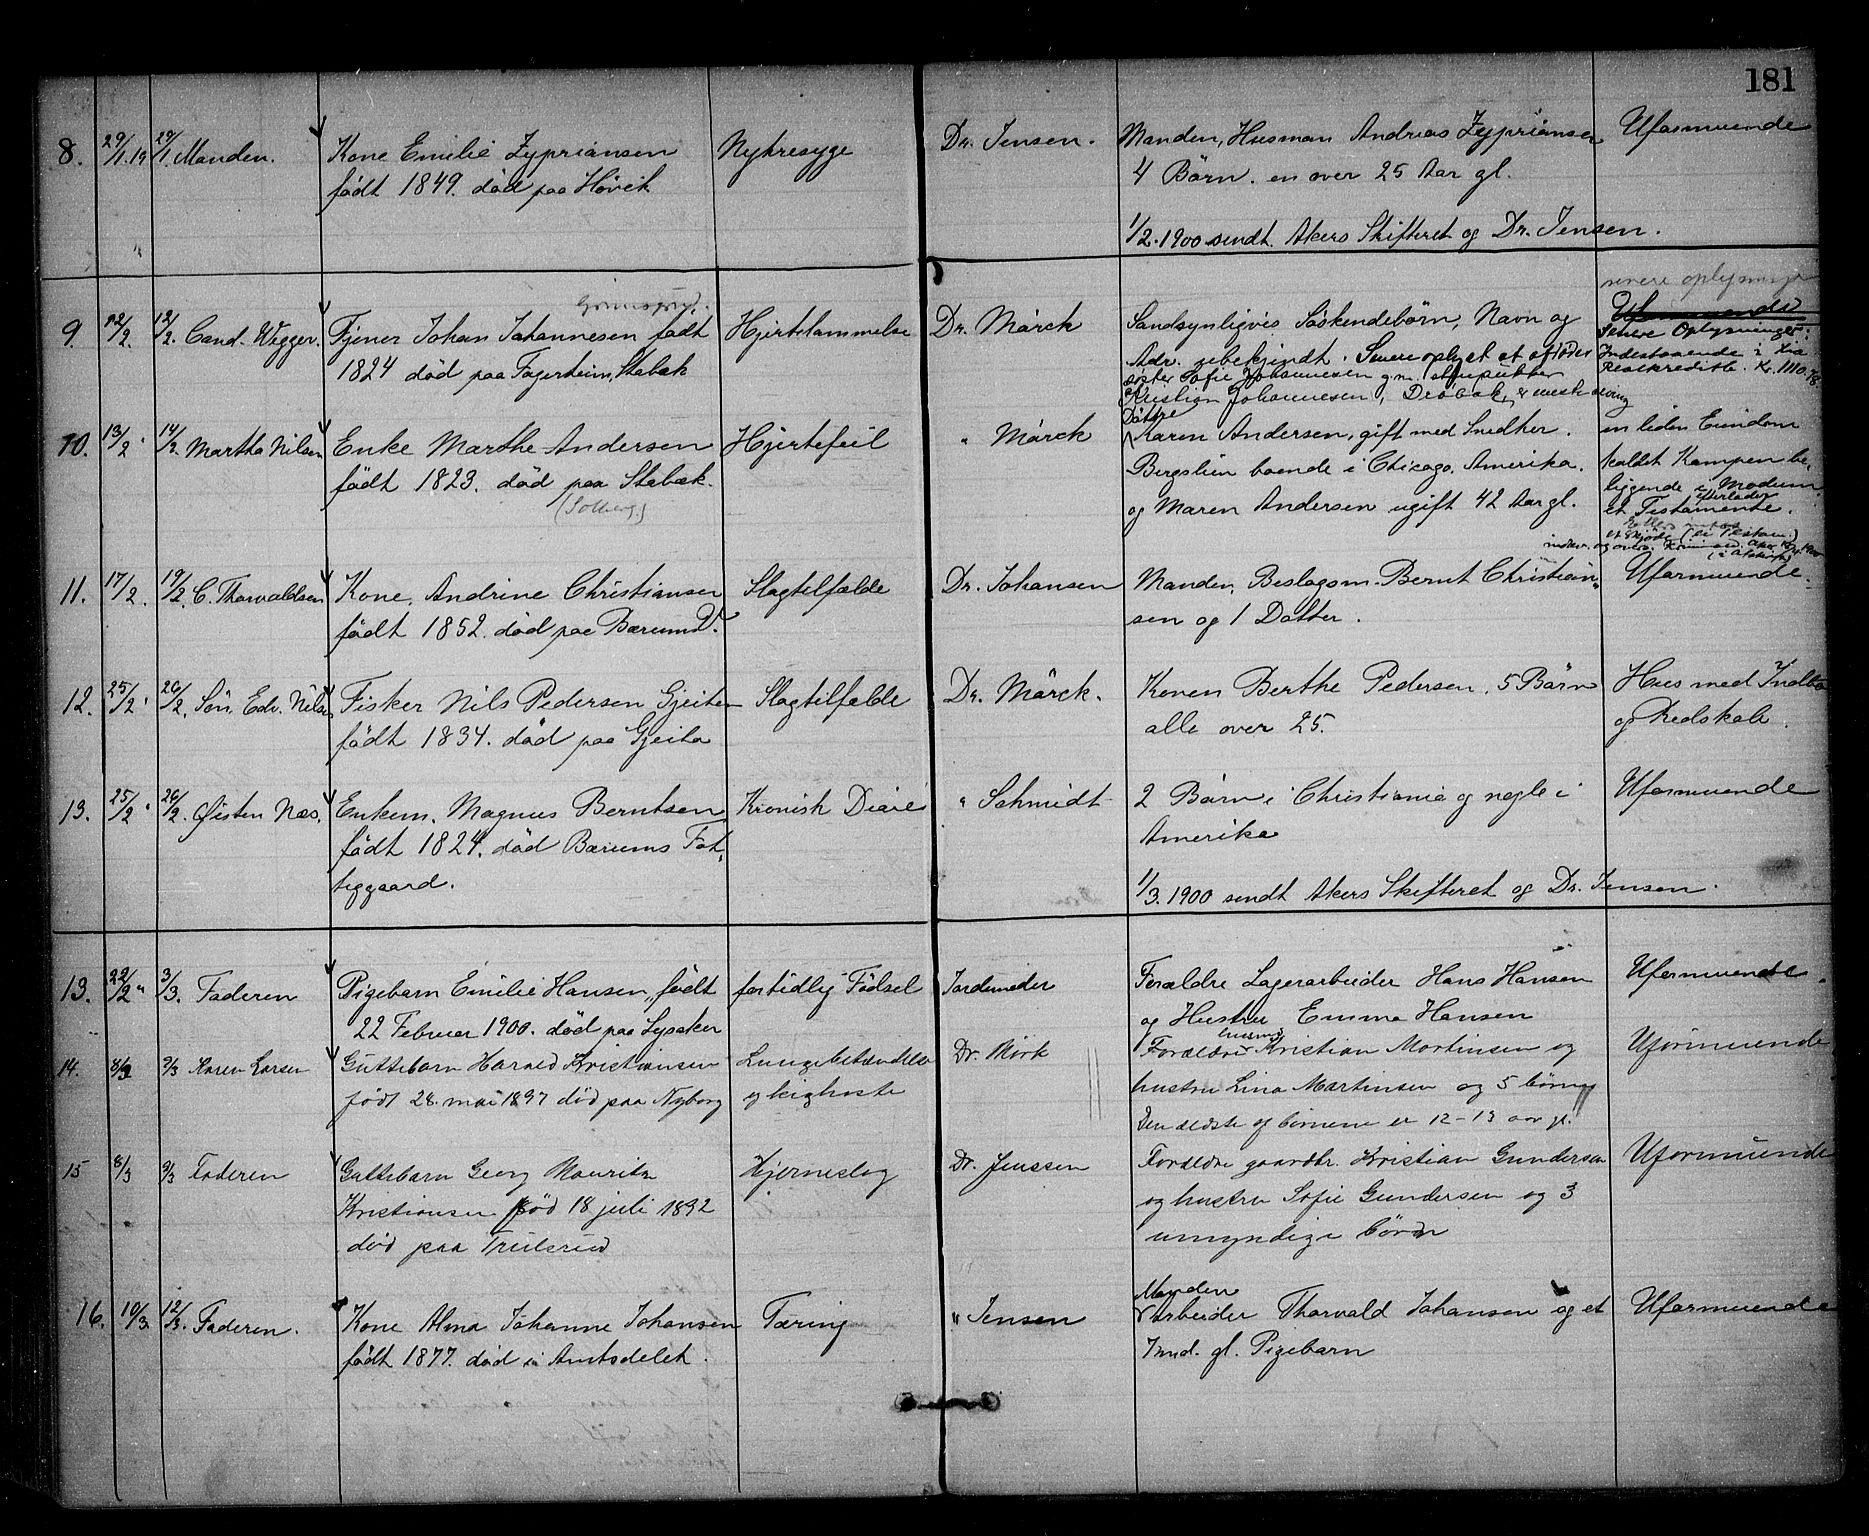 181
8. 29/1.19 29/1. Manden. Kone Emilie Zypriansen Nykresyge Dr. Jensen. Manden, Husman Andreas Zypriansen Uformuende
født 1849. død paa Høvik 4 Børn. en over 25 Aar gl.
1/2.1900 sendt. Akers Skifteret og Dr. Jensen.
senere oplysninger
9. 12/2. 12/2. Cand. Wigger. Tjener Johan Johannesen født Hjertelammelse Dr. Mørck Sandsynligvis Söskendebørn, Navn og Uformuende
1824 død paa Fagerheim, Stabæk Adr. ubekjendt. Senere oplyst at afdødes
Senere Oplysninger:
søster Sofie Johannesen g.m.
Indestaaende i Xia
Kristian Johannesen, Drøbak, er
Realkreditbk. Kr. 1110,78
Døttre
10. 13/2. 14/2. Martha Nilsen Enke Marthe Andersen Hjertefeil " Mørck Karen Andersen, gift med Snedker. en liden Eiendom
født 1823. død paa Stabæk. Bergslien boende i Chicago, Amerika. kaldet Kampen be-
(Solberg.) og Maren Andersen ugift 42 Aar gl. liggende i Modum
efterlader
et Testamente.
11. 17/2. 19/2. C. Thorvaldsen Kone, Andrine Christiansen Slagtilfælde Dr. Johansen Manden, Beslagsm. Bernt Christian- Uformuende.
født 1852. død paa Bærums V. sen og 1 Datter.
12. 25/2. 26/2. Søn. Edv. Nilsen Fisker Nils Pedersen Gjeiten Slagtilfælde Dr. Mørck. Konen Berthe Pedersen. 5 Børn Hus med Indbo
født 1834. død paa Gjeita alle over 25. og Redskab.
13. 25/2. 26/2. Øisten Næs. Enkem. Magnus Berntsen Kronisk Diare " Schmidt 2 Børn i Christiania og nogle i Uformuende
født 1824. død Bærums Fat- Amerika
tiggaard.
1/3.1900 sendt Akers Skifteret og Dr. Jensen.
13. 22/2" 3/3. Faderen Pigebarn Emilie Hansen, født fortidlig Fødsel Jordemoder Forældre Lagerarbeider Hans Hansen Uformuende.
22 Februar 1900. død paa Lysaker og Hustru Emma Hansen
husmd
14. 9/3 Karen Larsen Guttebarn Harald Kristiansen Lungebetændelse Dr. Mörk Forældre Kristian Martinsen og Uformuende
født 28. mai 1897 død paa Nyborg og kighoste hustru Lina Martinsen og 5 børn
Den ældste af børnene er 12-13 aar gl.
15 8/3 9/3 Faderen Guttebarn Georg Mauritz Hjerneslag Dr. Jenssen Forældre gaardbr. Kristian Gundersen Uformuende
Kristiansen fød 18 juli 1892 og hustru Sofie Gundersen og 3
død paa Trulsrud umyndige børn
Manden
16. 10/3. 12/3. Faderen. Kone Alma Johanne Johansen Tæring " Jensen Arbeider Thorvald Johansen og et Uformuende
født 1877. død i Amtsdelet. 7 md. gl. Pigebarn